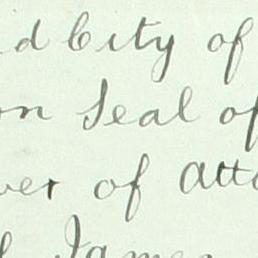 id City of
on Seal of
ver of Atto
James